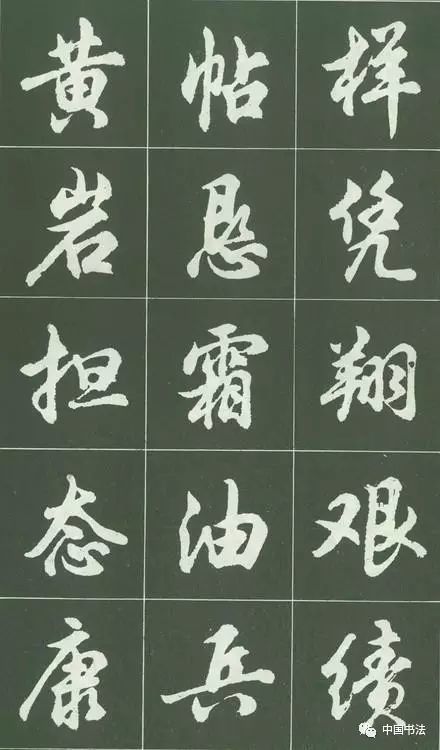 样凭翔艰绩
帖悬霜油兵
黄岩担态康
中国书法